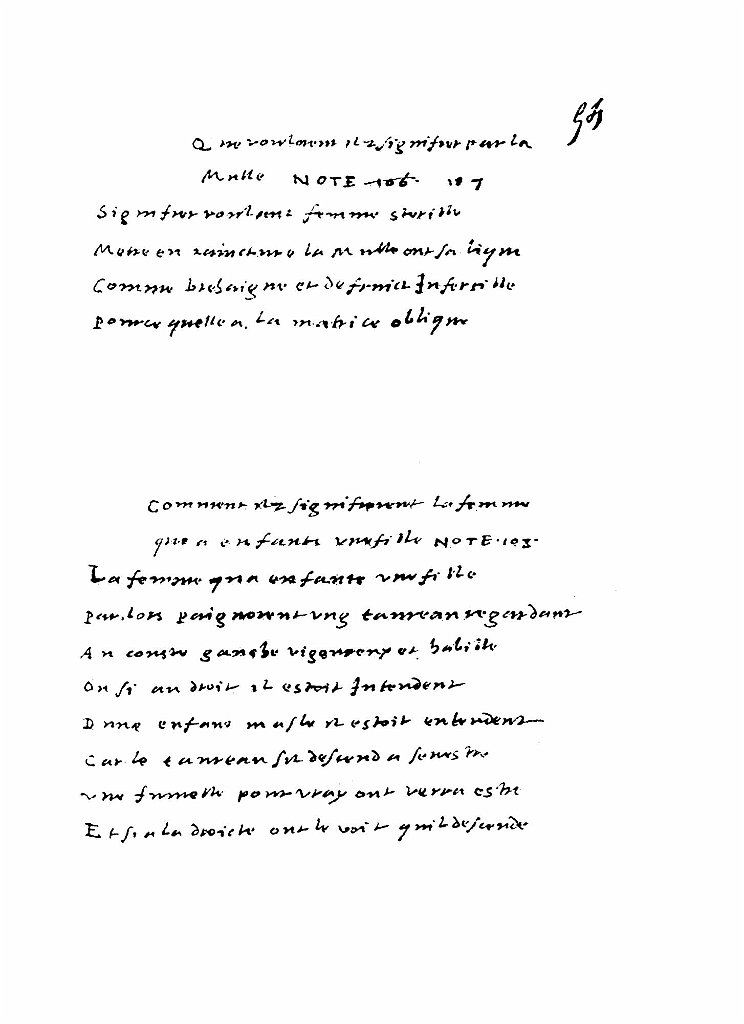 54
Que vouloient ilz signifier par la
Mulle NOTE 106. 107
Signifier voulant femme sterille
Mettre en paincture la Mulle ont sa ligne
Comme brehaigne et de fruict Infertille
Pource quelle a. La matrice oblique
Comment ilz signifioient la femme
que a enfante une fille NOTE.108.
La femme qua enfante une fille
Par.lors paignoient ung taureau regardant
Au coste gauche vigoureux et habille
Ou si au droit il estoit Intendent
Dung enfant masle il estoit entendent
Car le taureau sil descend a senestre
une fumelle pour vray ont verra estre
Et si a la droicte ont le voit quil descende